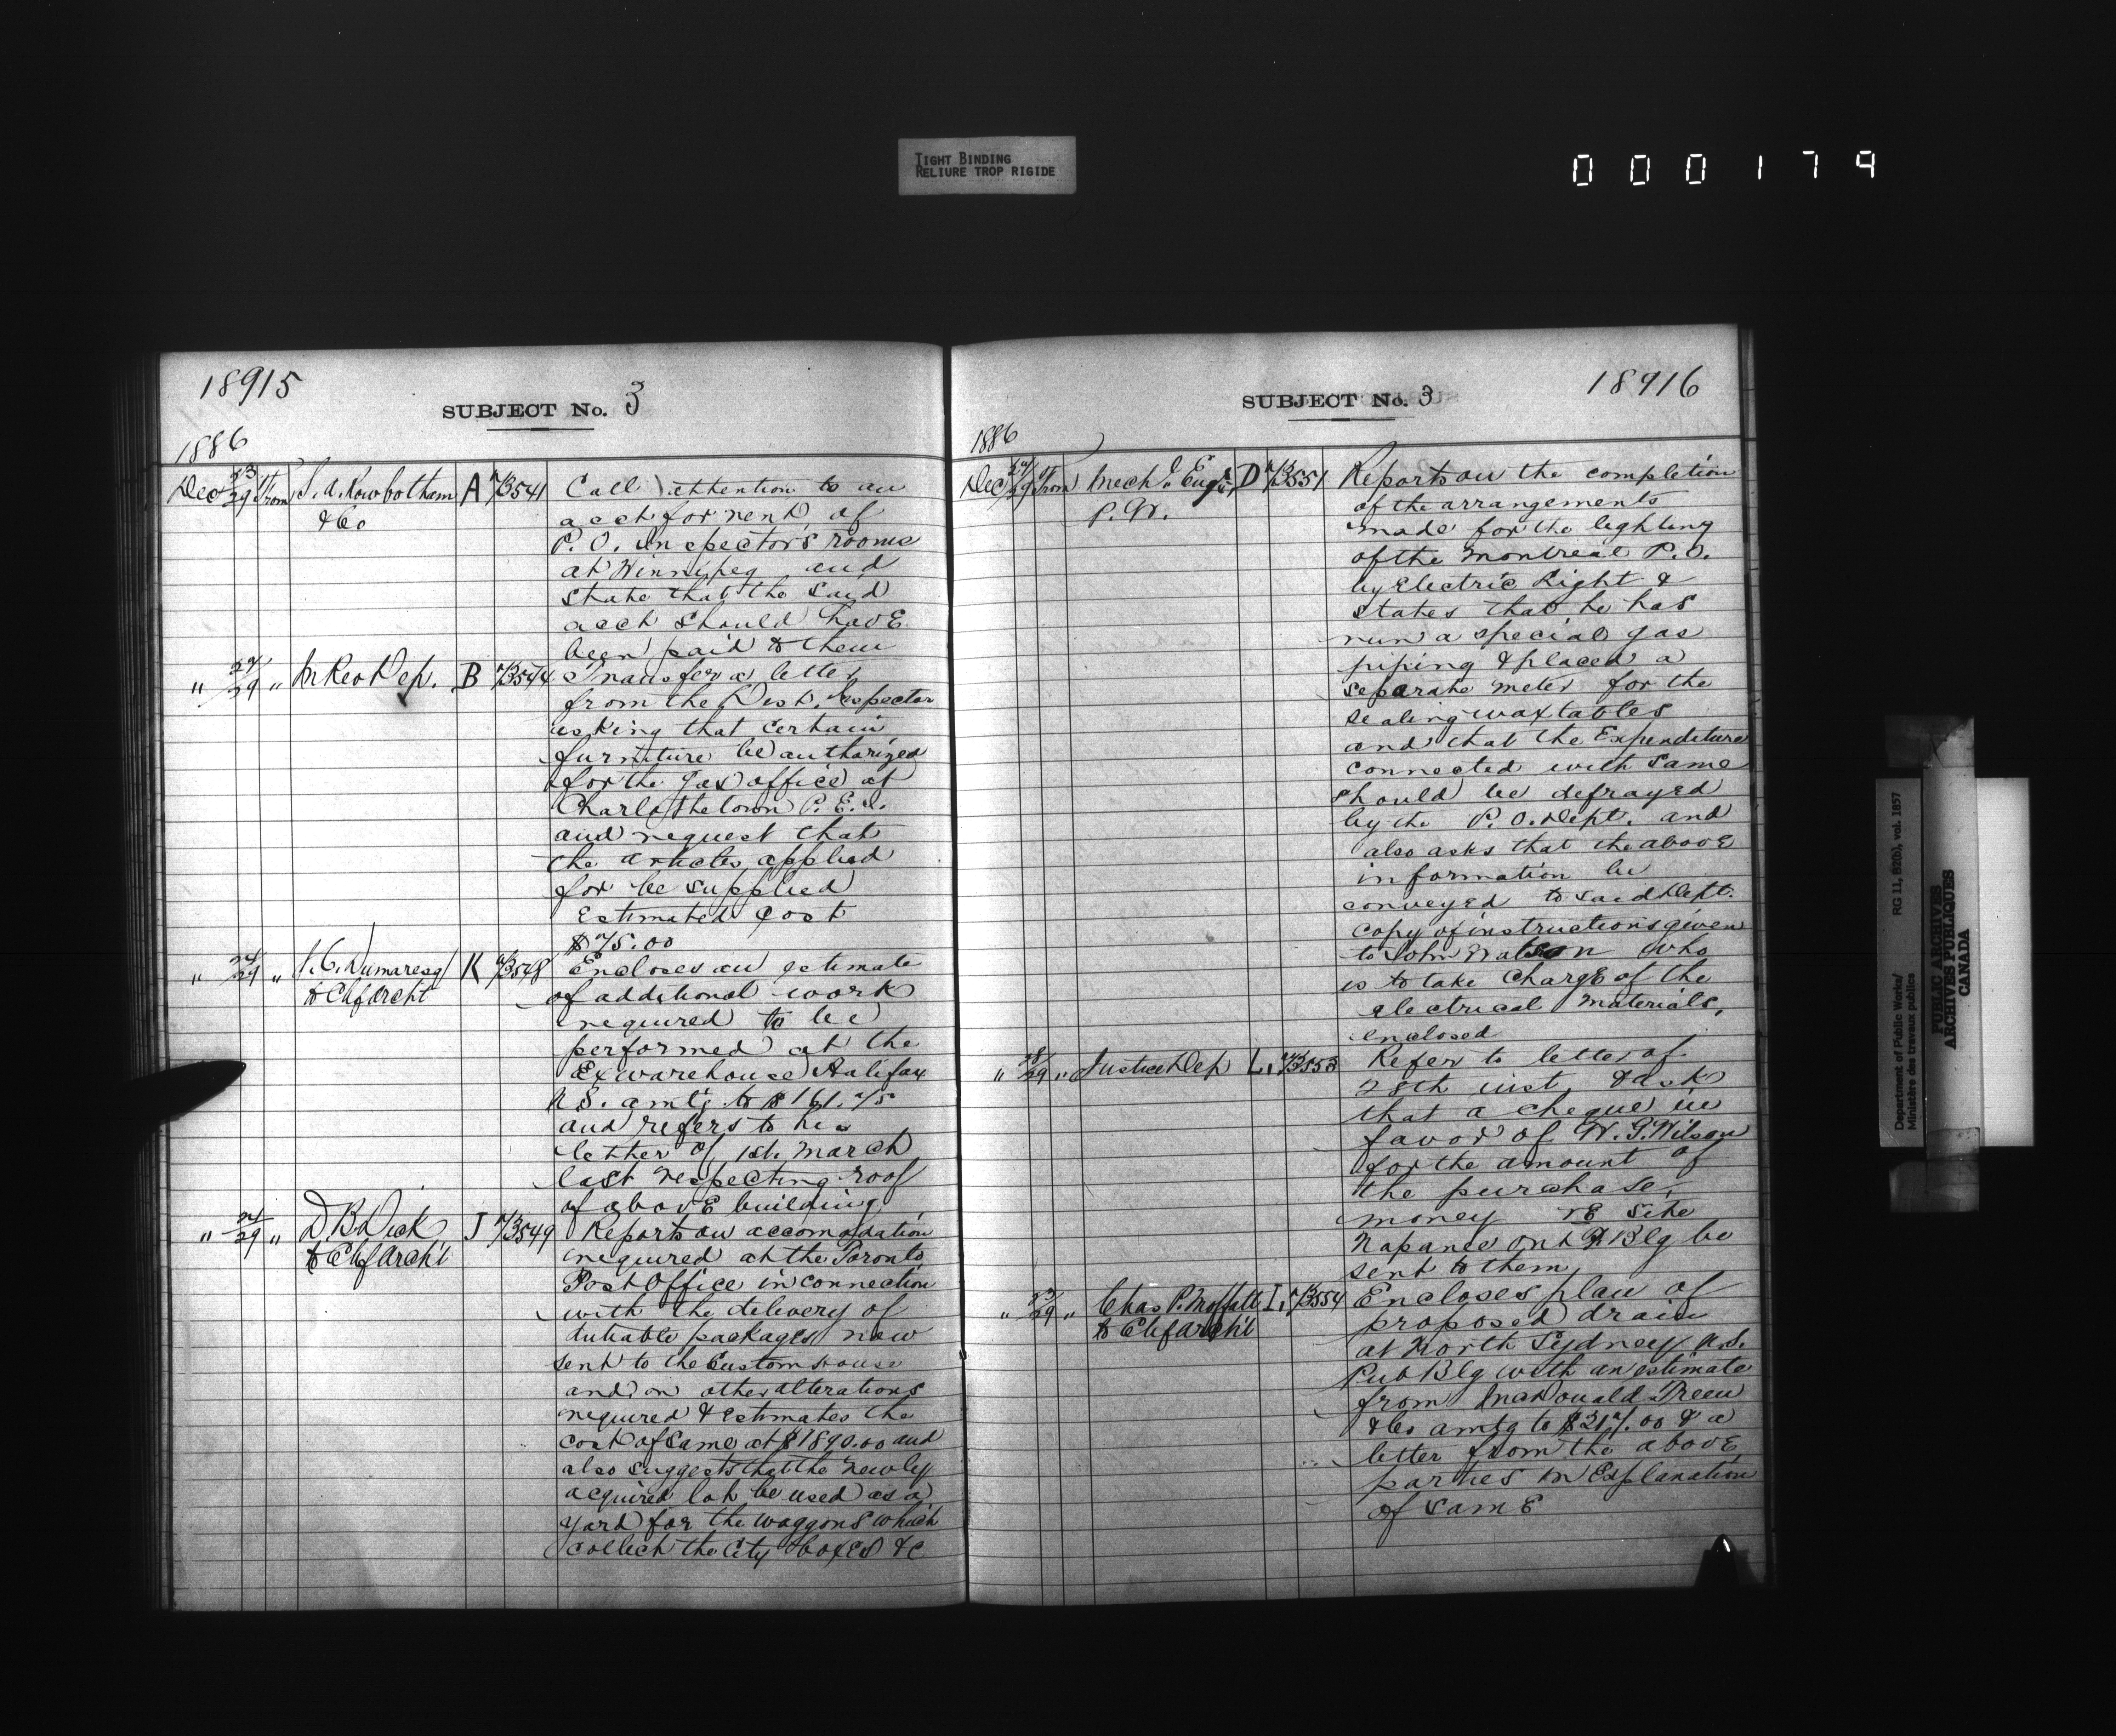 TIGHT BINDING
RELIURE TROP RIGIDE
000179
18915
SUBJECT No. 3
1886
Dec 23/29 From S. A. Rowbotham & Co A 73541 Call attention to an
acct for rent of
P. O. Inspectors rooms
at Winnipeg and
state that the said
acct should have
been paid to them
" 27/29 " In Rev Dep. B 73544 Transfer a letter
from the Dist. Inspector
asking that certain
furniture be authorized
for the gas office at
Charlottetown P. E. I.
and request that
the articles applied
for be supplied
Estimated cost
$75.00
" 24/29 " J. C. Dumaresq to Chf Archt K 73548 Encloses an estimate
of additional work
required to be
performed at the
Ex warehouse Halifax
N.S. amtg to $161.75
and refers to his
letter of 1st March
last respecting roof
of above building
" 24/29 " D. B. Dick to Chf Archt J 73549 Reports on accomodation
required at the Toronto
Post Office in connection
with the delivery of
dutiable packages now
sent to the Custom House
and on other alterations
required & estimates the
cost of same at $1890.00 and
also suggests that the newly
acquired lot be used as a
yard for the waggons which
collect the City boxes &c
18916
SUBJECT No. 3
1886
Dec 27/29 From Mech. Engr P. W. D 73551 Reports on the completion
of the arrangements
made for the lighting
of the Montreal P.O.
by Electric Light &
states that he has
run a special gas
piping & placed a
separate meter for the
sealing wax tables
and that the Expenditure
connected with same
should be defrayed
by the P. O. Dept. and
also asks that the above
information be
conveyed to said Dept.
Copy of instructions given
to John Watson who
is to take charge of the
electrical materials,
enclosed
" 28/29 " Justice Dep L. 73553 Refer to letter of
28th inst. & ask
that a cheque in
favor of W. G. Wilson
for the amount of
the purchase,
money re Site
Napanee Ont P Blg be
sent to them
" 23/29 " Chas P. Moffatt to Chf Archt I, 73554 Encloses plan of
proposed drain
at North Sydney N.S.
Pub Blg with an estimate
from MacDonald Treen
& Co amtg to $317.00 & a
letter from the above
parties in Explanation
of same
Department of Public Works/
Ministère des travaux publics
RG 11, B2(b), vol. 1857
PUBLIC ARCHIVES
ARCHIVES PUBLIQUES
CANADA